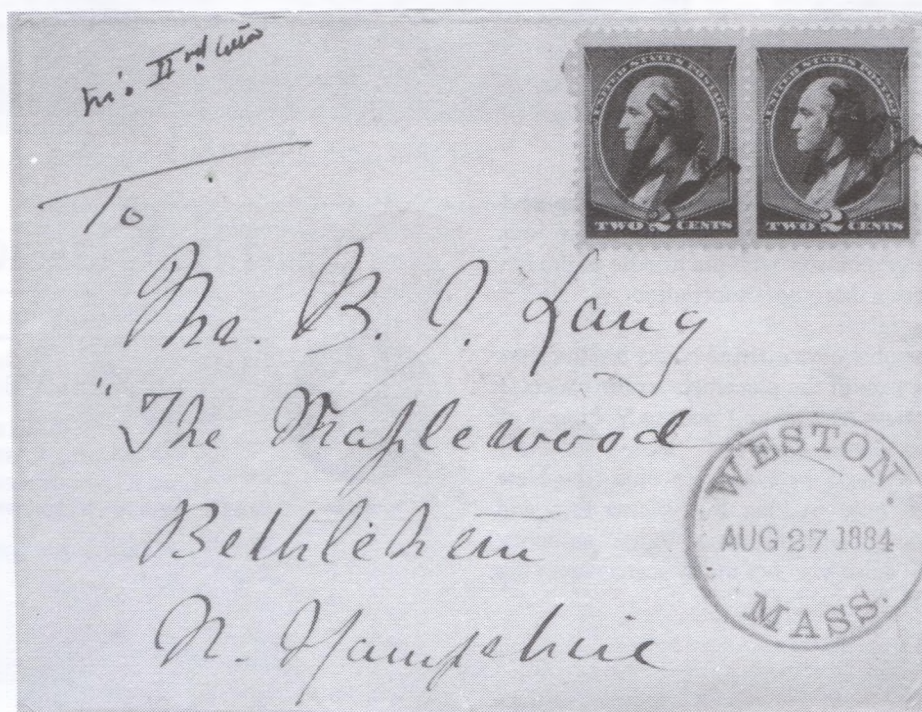 II nd
UNITED STATES POSTAGE
TWO 2 CENTS
UNITED STATES POSTAGE
TWO 2 CENTS
To
B. J. Lang
"The Maplewood
Bethlehem
N. Hampshire
WESTON.
AUG 27 1884
MASS.